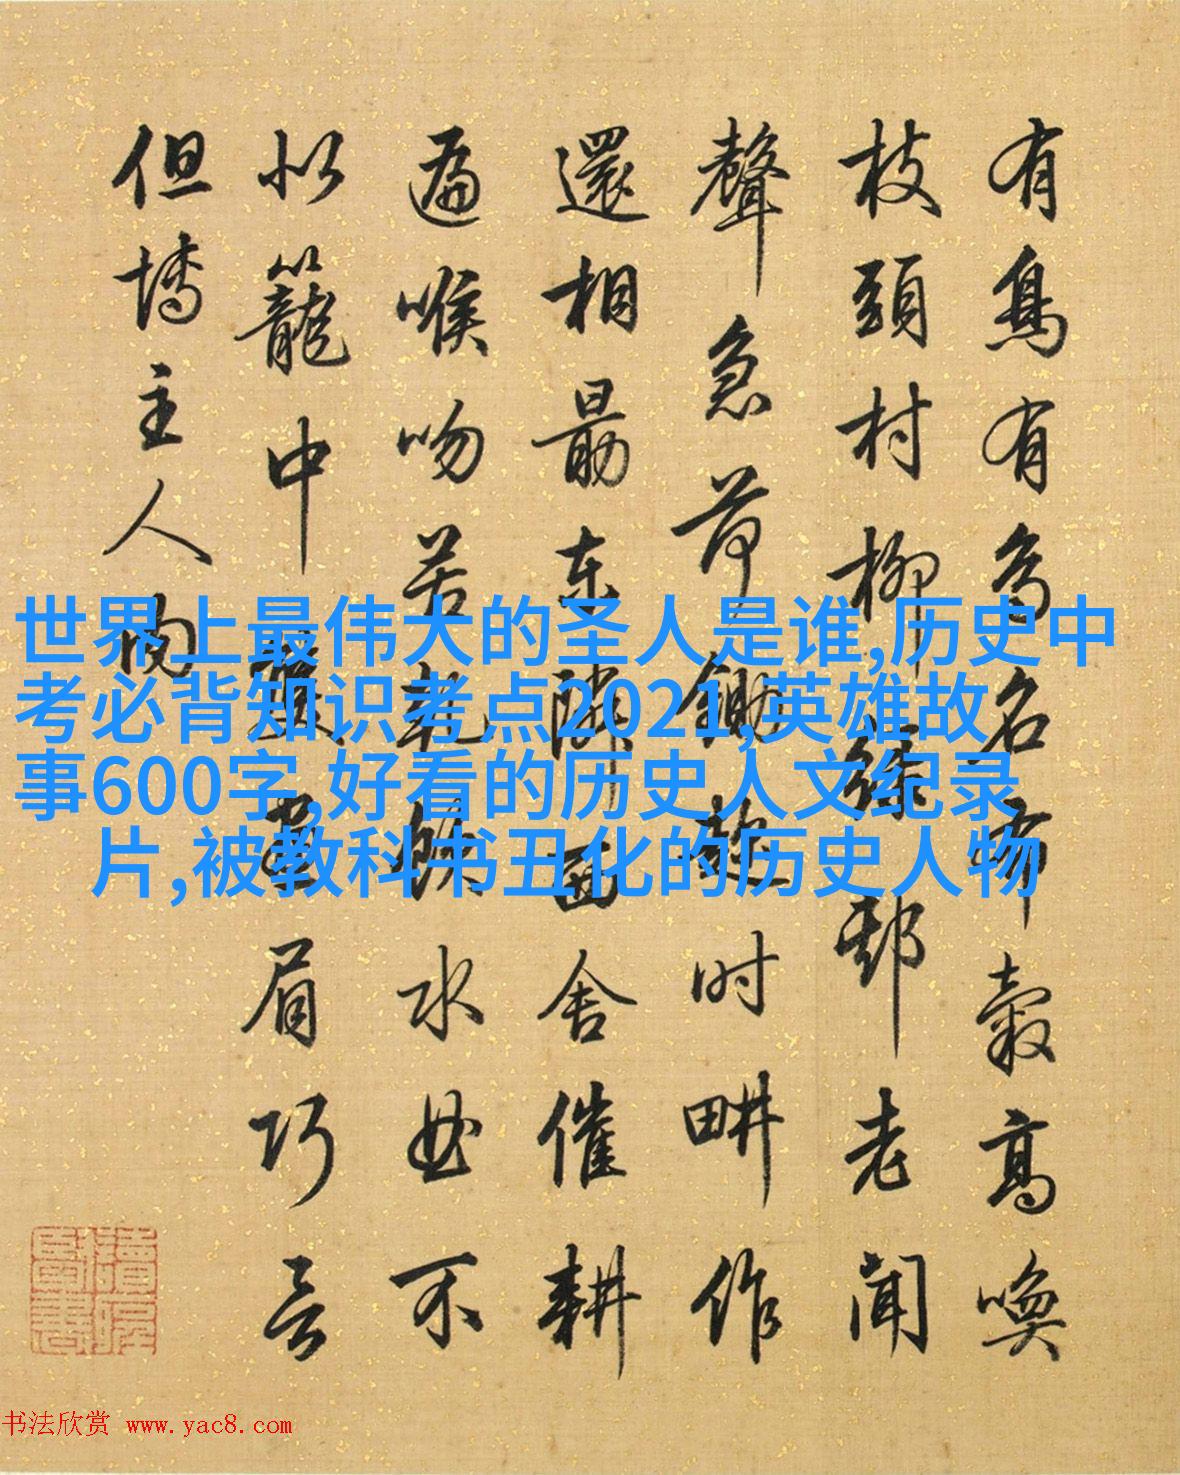 有鳥有鳥名布穀高喚
枝頭村柳緑邨老聞
聲急荷鋤趁時畊作
還相勗東隣西舍催耕
遍喉吻苦乾水不
似籠中畫眉巧言
但主人
世界上最伟大的圣人是谁,历史中
考必背知识考点2021,英雄故
事600字,好看的历史人文纪录
片,被教科书丑化的历史人物
书法欣赏 www.yac8.com